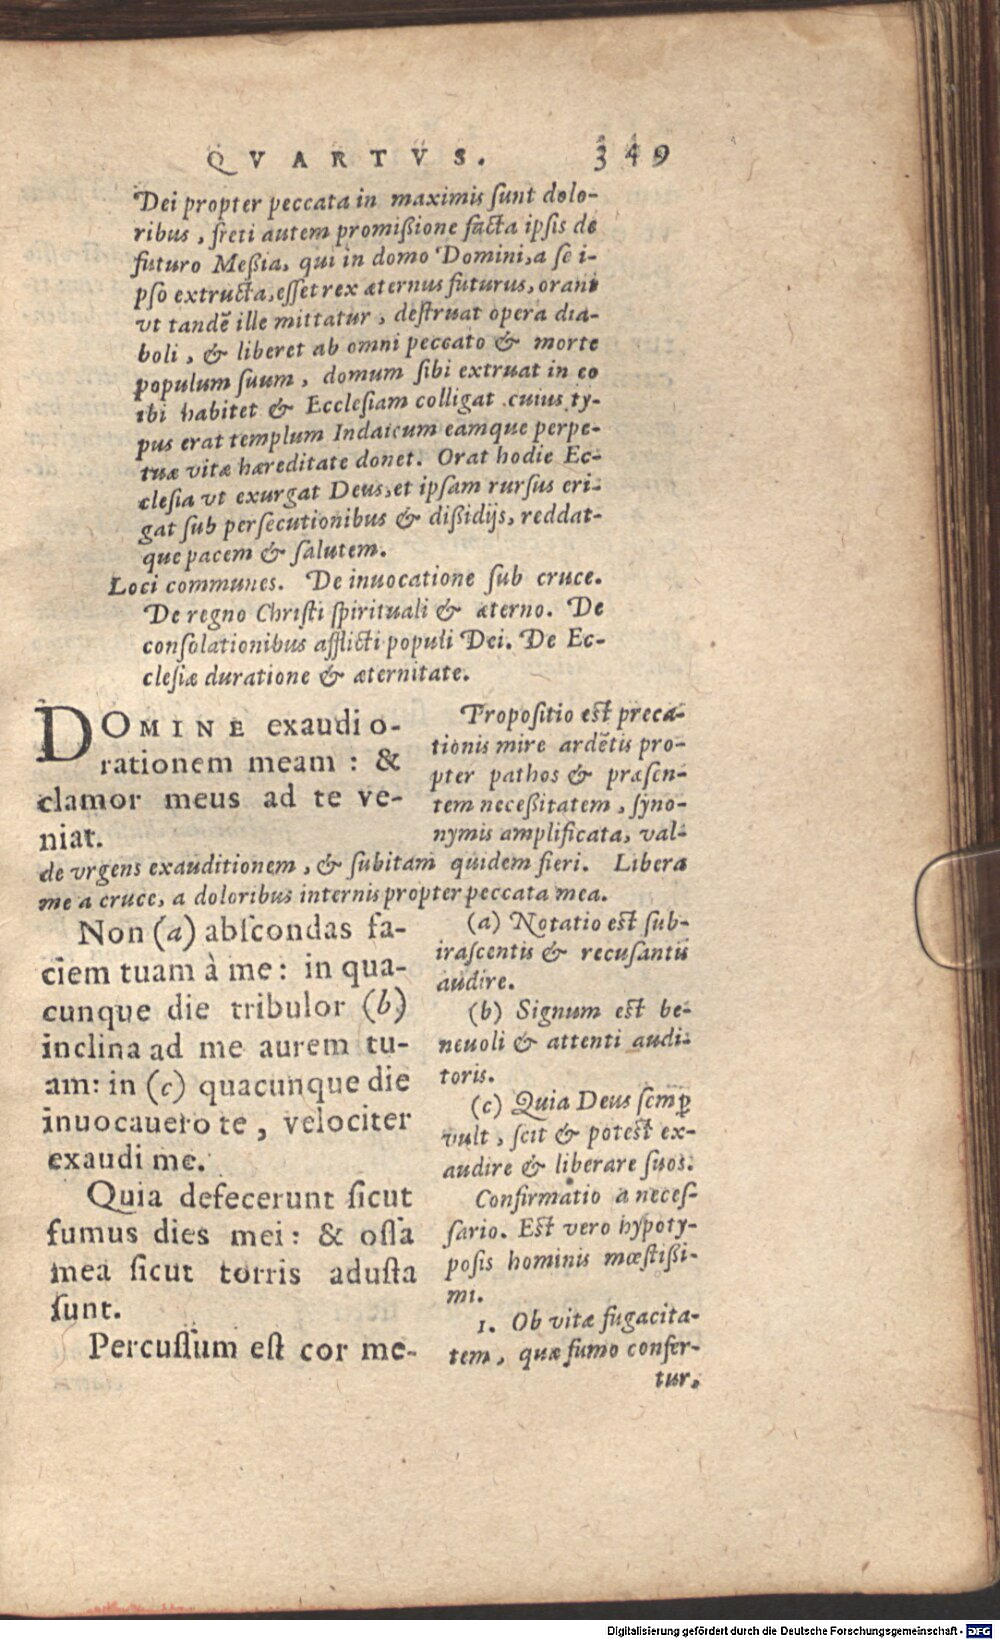 QVARTVS. 349
Dei propter peccata in maximis ſunt dolo-
ribus, freti autem promißione facta ipſis de
futuro Meßia, qui in domo Domini, a ſe i-
pſo extructa, eſſet rex æternus futurus, orant
vt tandē ille mittatur, deſtruat opera dia-
boli, & liberet ab omni peccato & morte
populum ſuum, domum ſibi extruat in eo
ibi habitet & Eccleſiam colligat cuius ty-
pus erat templum Indaicum eamque perpe-
tuæ vitæ hæreditate donet. Orat hodie Ec-
cleſia vt exurgat Deus, et ipſam rurſus eri-
gat ſub perſecutionibus & dißidijs, reddat-
que pacem & ſalutem.
Loci communes. De inuocatione ſub cruce.
De regno Chriſti ſpirituali & æterno. De
conſolationibus afflicti populi Dei. De Ec-
cleſiæ duratione & æternitate.
DOMINE exaudi o-
rationem meam : &
clamor meus ad te ve-
niat.
Propoſitio eſt preca-
tionis mire ardētis pro-
pter pathos & præſen-
tem neceßitatem, ſyno-
nymis amplificata, val-
de vrgens exauditionem, & ſubitam quidem fieri. Libera
me a cruce, a doloribus internis propter peccata mea.
Non (a) abſcondas fa-
ciem tuam à me : in qua-
cunque die tribulor (b)
inclina ad me aurem tu-
am: in (c) quacunque die
inuocauero te, velociter
exaudi me.
Quia defecerunt ſicut
fumus dies mei : & oſſa
mea ſicut torris aduſta
ſunt.
Percuſſum eſt cor me-
(a) Notatio eſt ſub-
iraſcentis & recuſantis
audire.
(b) Signum eſt be-
neuoli & attenti audi-
toris.
(c) Quia Deus ſemꝑ
vult, ſcit & poteſt ex-
audire & liberare ſuos.
Confirmatio a neceſ-
ſario. Eſt vero hypoty-
poſis hominis mœſtißi-
mi.
1. Ob vitæ fugacita-
tem, quæ fumo confer-
tur,
Digitalisierung gefördert durch die Deutsche Forschungsgemeinschaft - DFG